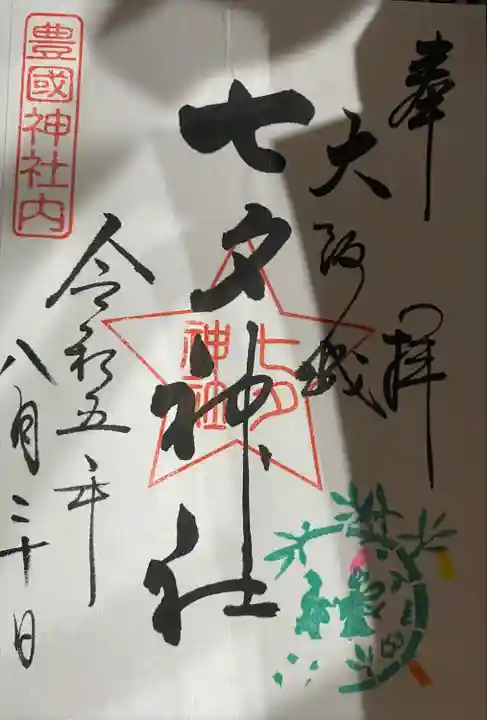 奉拝
大阪城
七夕神社
七夕神社
令和五年
八月二十日
豊國神社内